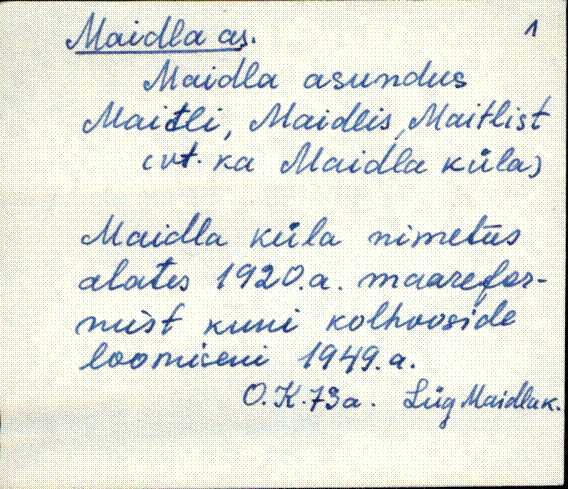 Maidla as. 1
Maidla asundus
Maitli, Maidlis, Maitlist
(vt. ka Maidla küla)
Maidla küla nimetus
alates 1920.a. maarefor-
mist kuni kolhooside
loomiseni 1949.a.
O.K. 79a. Lüg Maidla k.